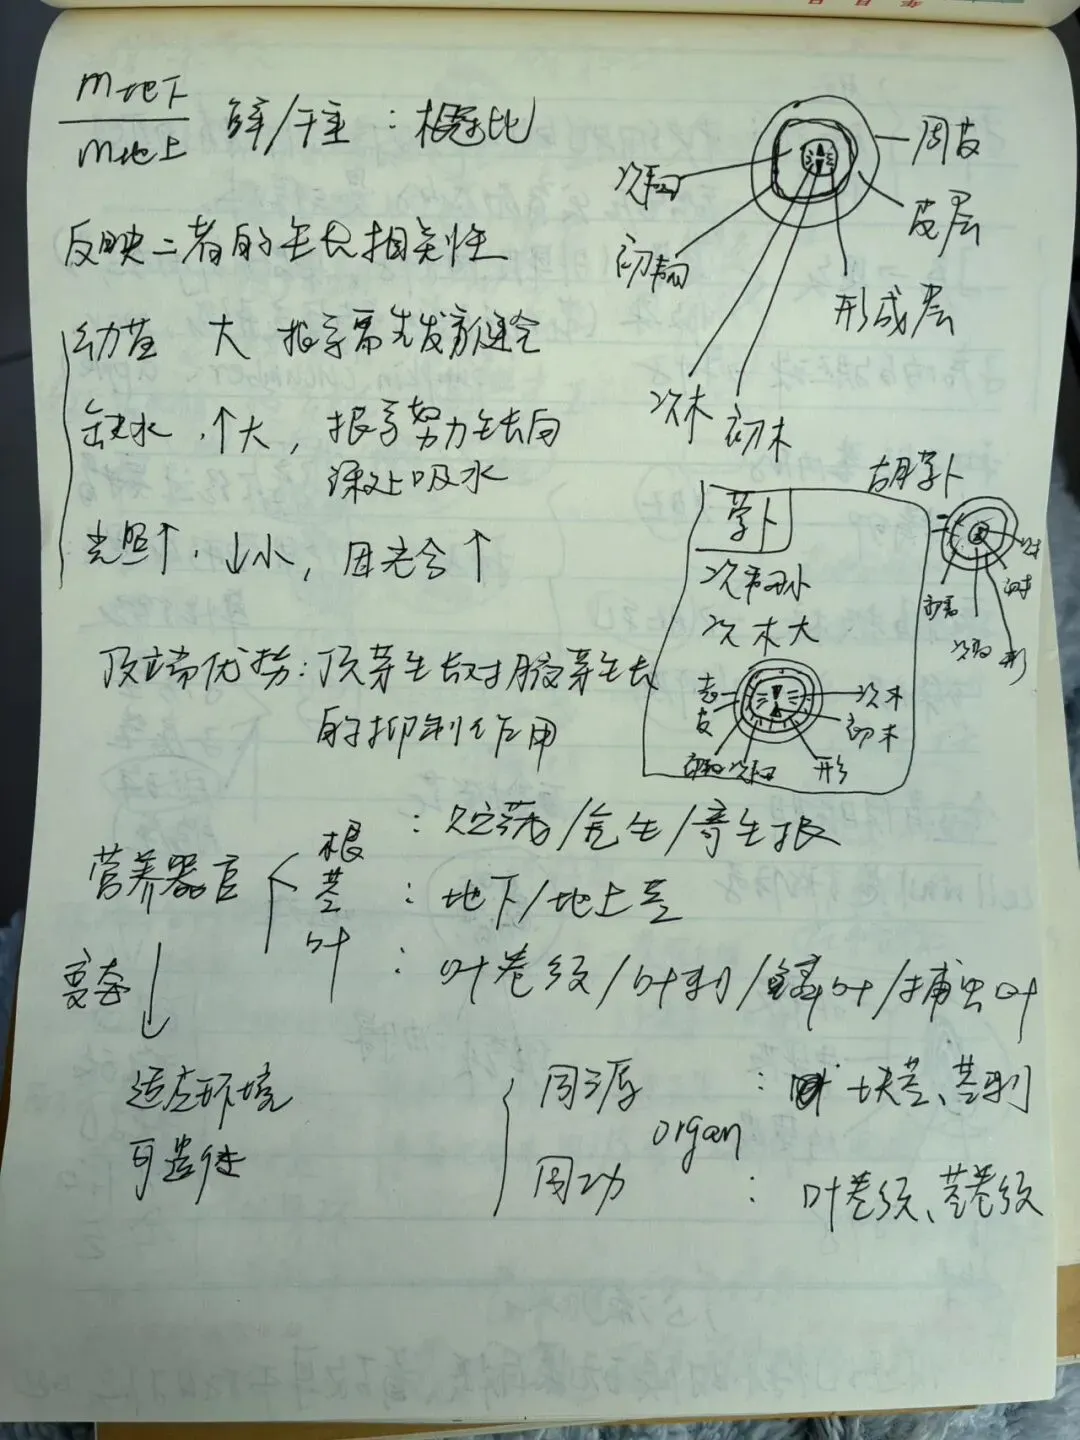 m地下
m地上
鲜/干重：根冠比
反映二者的生长相关性
幼苗 大 根系需先发育健全
缺水 ↑大，根系努力生长向
深处吸水
光照↑，↓小，因光合↑
周皮
皮层
形成层
次韧
初韧
次木
初木
胡萝卜
次木
初木
初韧
次韧
形
萝卜
次韧小
次木大
次木
初木
形
次韧
初韧
皮
顶端优势：顶芽生长对腋芽生长
的抑制作用
营养器官
根：贮藏/气生/寄生根
茎：地下/地上茎
叶：叶卷须/叶刺/鳞叶/捕虫叶
变态
适应环境
可遗传
同源 organ：块茎、茎刺
同功：叶卷须、茎卷须